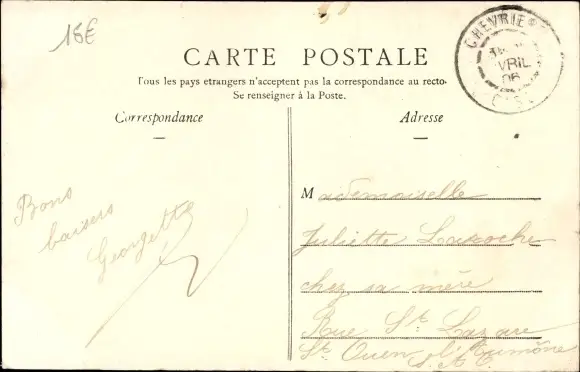 16€
CARTE POSTALE
Tous les pays etrangers n'acceptent pas la correspondance au recto.
Se renseigner à la Poste.
Correspondance
Adresse
CHEVRIE
AVRIL
06
OISE
Bons
baisers
Georgette
Mademoiselle
Juliette Laroche
chez sa mère
Rue St Lazare
St Ouen l'Aumône
S. et O.